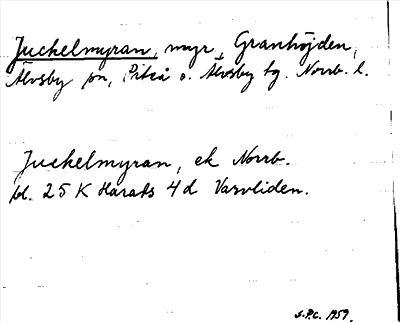 Juckelmyran, myr, Granhöjden,
Älvsby sn, Piteå o. Älvsby tg. Norrb. l.
Juckelmyran, ek Norrb.
bl. 25 K Harads 4d Vasvliden.
S.P.C. 1959.